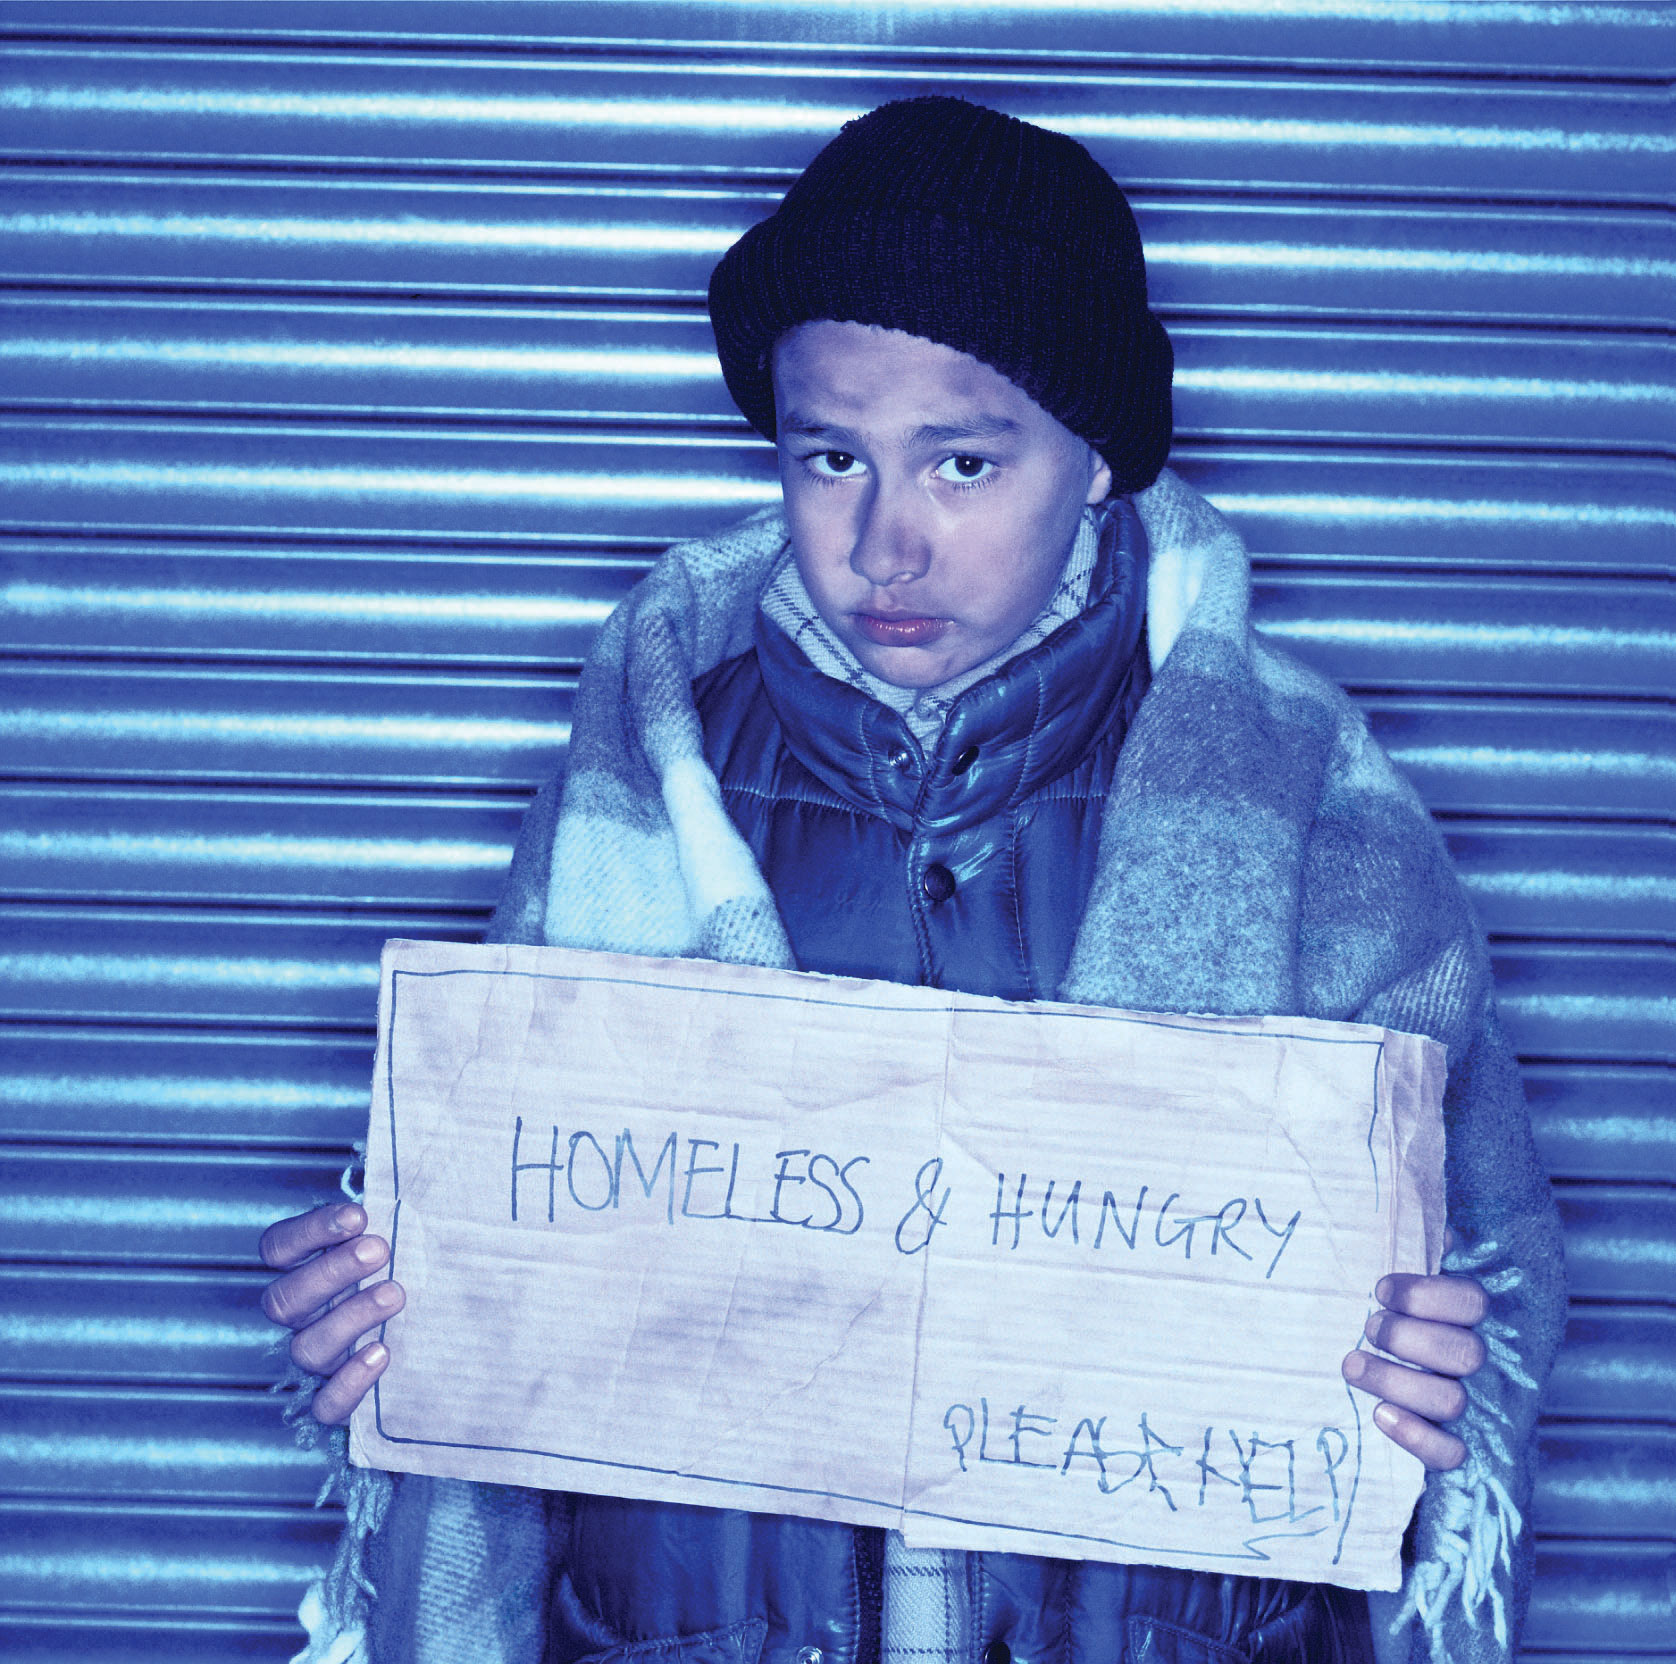 HOMELESS & HUNGRY
PLEASE HELP